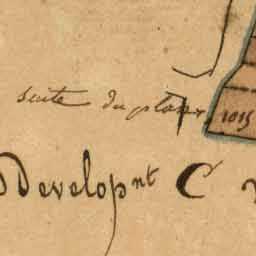 suite du plan
1015
Developnt C